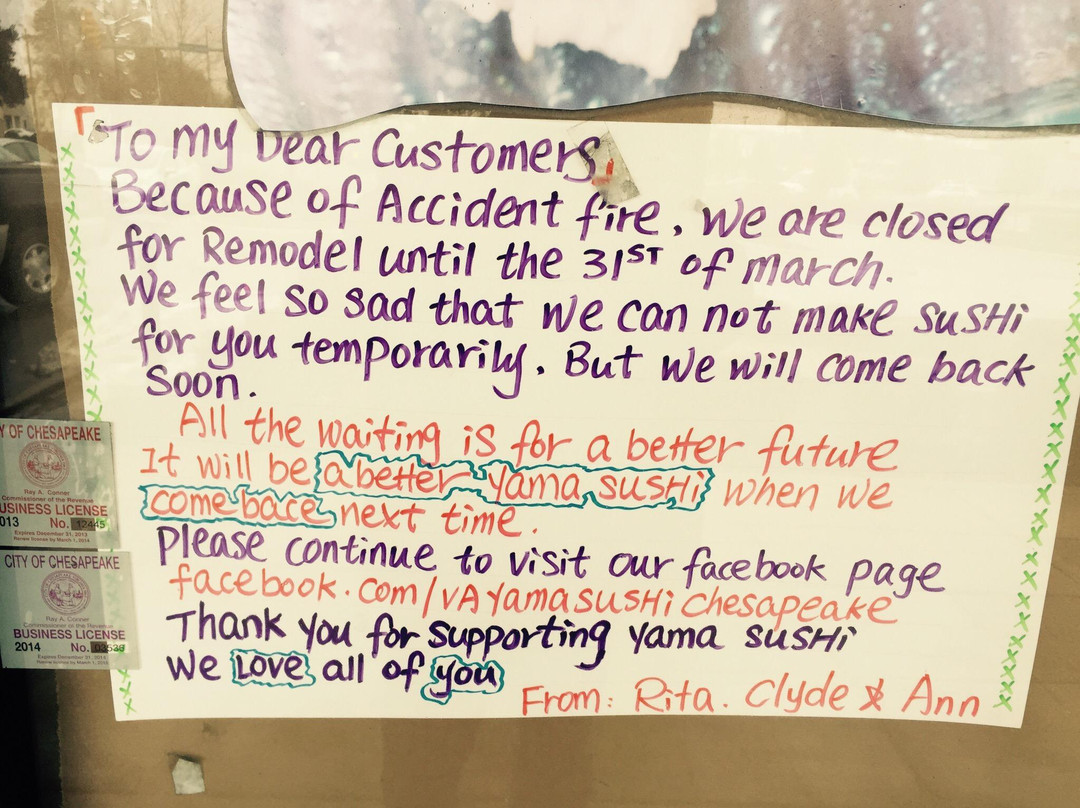 To my Dear Customers,
Because of Accident fire, we are closed
for Remodel until the 31ST of march.
We feel so sad that we can not make SUSHi
for you temporarily. But we will come back
soon.
All the waiting is for a better future
It will be a better yama SUSHi when we
come bace next time.
Please continue to visit our facebook page
facebook.com/VAYamaSUSHiChesapeake
Thank you for supporting yama SUSHi
We Love all of you
From: Rita. Clyde & Ann
Y OF CHESAPEAKE
Ray A. Conner
Commissioner of the Revenue
USINESS LICENSE
013 No. 12445
Expires December 31, 2013
CITY OF CHESAPEAKE
Ray A. Conner
Commissioner of the Revenue
BUSINESS LICENSE
2014 No.